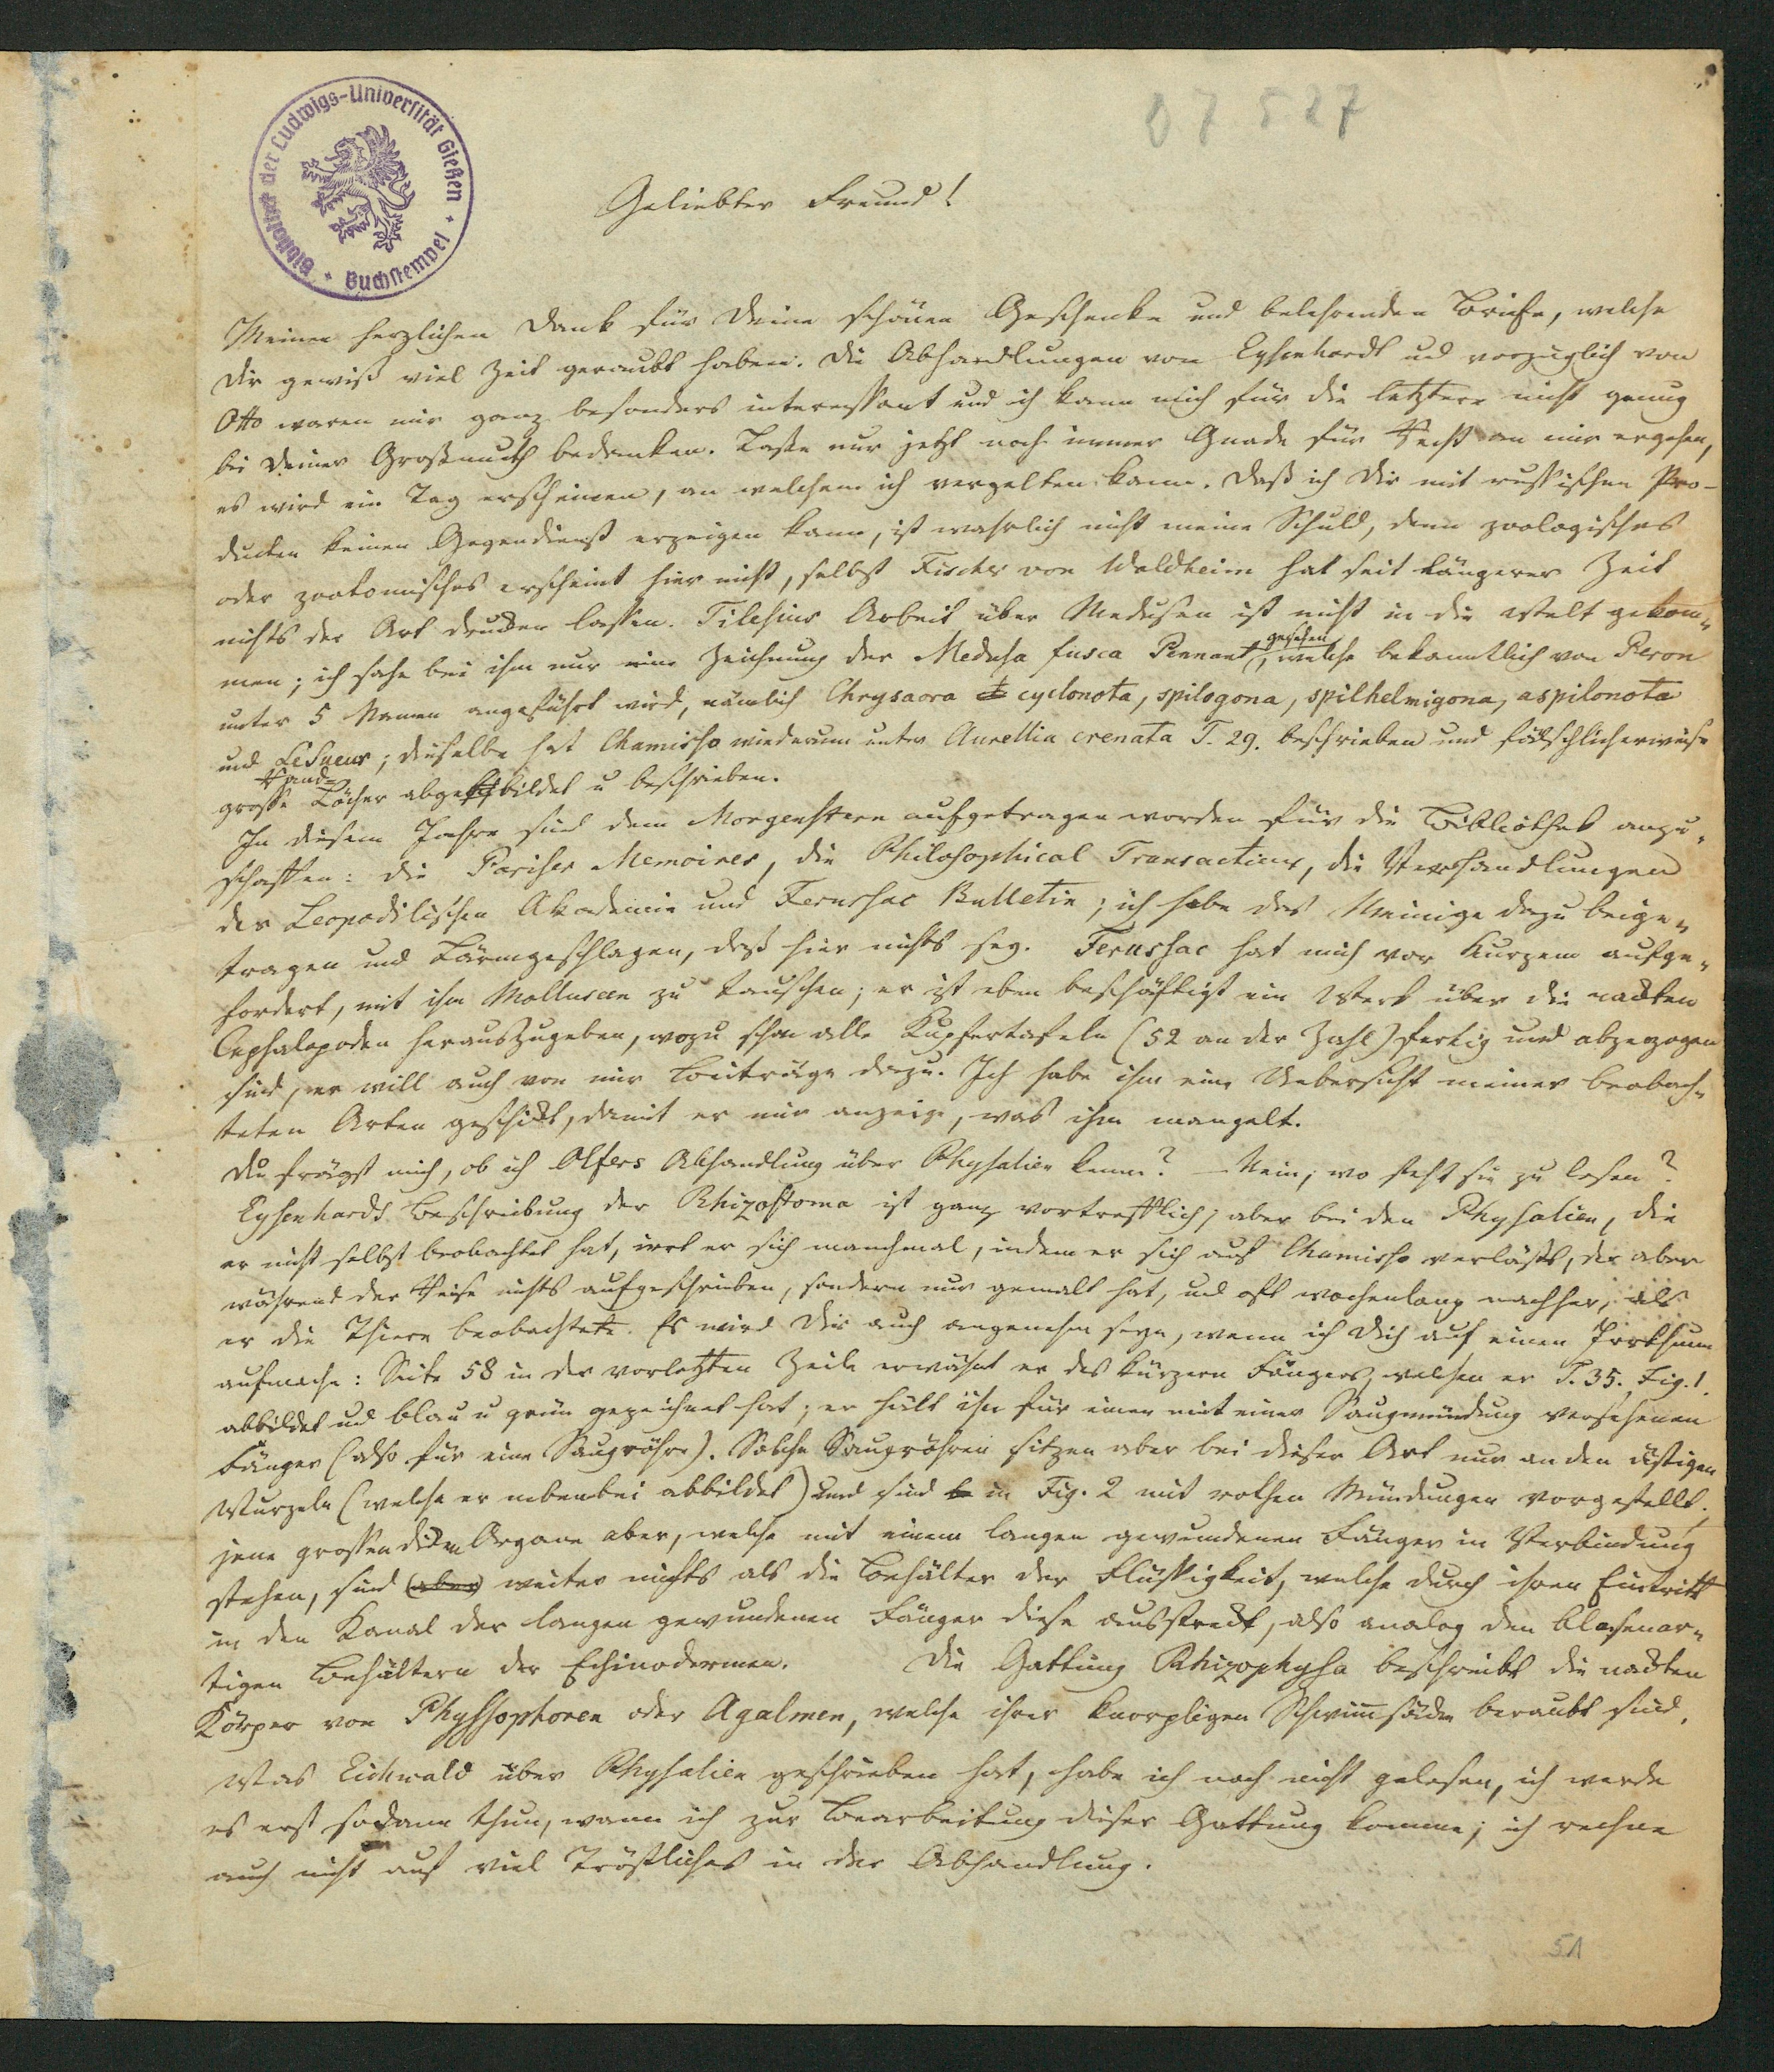 07527
Bibliothek der Ludwigs-Universität Gießen · Buchstempel
Geliebter Freund!
Meinen herzlichen Dank für Deine schönen Geschenke und belehrenden Briefe, welche
Dir gewiß viel Zeit geraubt haben. Die Abhandlungen von Eysenhardt und vorzüglich von
Otto waren mir ganz besonders interessant und ich kann mich für die letztere nicht genug
bei Deiner Großmuth bedanken. Laße nur jetzt noch immer Gnade für Recht an mir ergehen,
es wird ein Tag erscheinen, an welchem ich vergelten kann. Daß ich Dir mit russischen Pro-
ducten keinen Gegendienst erzeigen kann, ist wahrlich nicht meine Schuld, denn zoologisches
oder zootomisches erscheint hier nicht, selbst Fischer von Waldheim hat seit längerer Zeit
nichts der Art drucken lassen. Tilesius Arbeit über Medusen ist nicht in die Welt gekom-
men; ich habe bei ihm nur eine Zeichnung der Medusa fusca Pennant gesehen, welche bekanntlich von Peron
unter 5 Namen angeführt wird, nämlich Chrysaora cyclonota, spilogona, spilhelmigona, aspilonota
und LeSueur; dieselbe hat Chamisso wiederum unter Aurellia crenata T. 29. beschrieben und fälschlicherweise
große Rand-Löcher abgebildet u beschrieben.
In diesem Jahre sind dem Morgenstern aufgetragen worden für die Bibliothek anzu-
schaffen: die Pariser Memoires, die Philosophical Transactions, die Verhandlungen
der Leopoldischen Akademie und Ferussac Bulletin; ich habe das Meinige dazu beige-
tragen und Lärm geschlagen, daß hier nichts sey. Ferussac hat mich vor Kurzem aufge-
fordert, mit ihm Mollusken zu tauschen; er ist eben beschäftigt ein Werk über die nackten
Cephalopoden herauszugeben, wozu schon alle Kupfertafeln (52 an der Zahl) fertig und abgezogen
sind, er will auch von mir Beiträge dazu. Ich habe ihm eine Uebersicht meiner beobach-
teten Arten geschickt, damit er mir anzeige, was ihm mangelt.
Du frägst mich, ob ich Olfers Abhandlung über Physalien kenne? — Nein; wo steht sie zu lesen?
Eysenhardt Beschreibung der Rhizostoma ist ganz vortrefflich; aber bei den Physalien, die
er nicht selbst beobachtet hat, irrt er sich manchmal, indem er sich auf Chamisso verläßt, der aber
während der Reise nichts aufgeschrieben, sondern nur gemalt hat, und oft wochenlang nachher, als
er die Thiere beobachtete. Es wird Dir auch angenehm seyn, wenn ich Dich auf einen Irrthum
aufmache: Seite 58 in der vorletzten Zeile erwähnt er des kürzern Fängers, welchen er T. 35. Fig. 1.
abbildet und blau u grün gezeichnet hat; er hält ihn für einen mit einer Saugmündung versehenen
Fänger (also für eine Saugröhre). Solche Saugröhren sitzen aber bei dieser Art nur an den ästigen
Wurzeln (welche er nebenbei abbildet) und sind in Fig. 2 mit rothen Mündungen vorgestellt;
jene großen dicken Organe aber, welche mit einem langen gewundenen Fänger in Verbindung
stehen, sind (aber) weiter nichts als die Behälter der Flüssigkeit, welche durch ihren Eintritt
in den Kanal der langen gewundenen Fänger diese ausstreckt, also analog den blasenar-
tigen Behältern der Echinodermen. Die Gattung Rhizophysa beschreibt die nackten
Körper von Physsophoren oder Agalmen, welche ihrer knorpligen Schwimm beraubt sind.
Was Eichwald über Physalien geschrieben hat, habe ich noch nicht gelesen, ich werde
es erst sodann thun, wann ich zur Bearbeitung dieser Gattung komme; ich rechne
auch nicht auf viel Tröstliches in der Abhandlung.
51